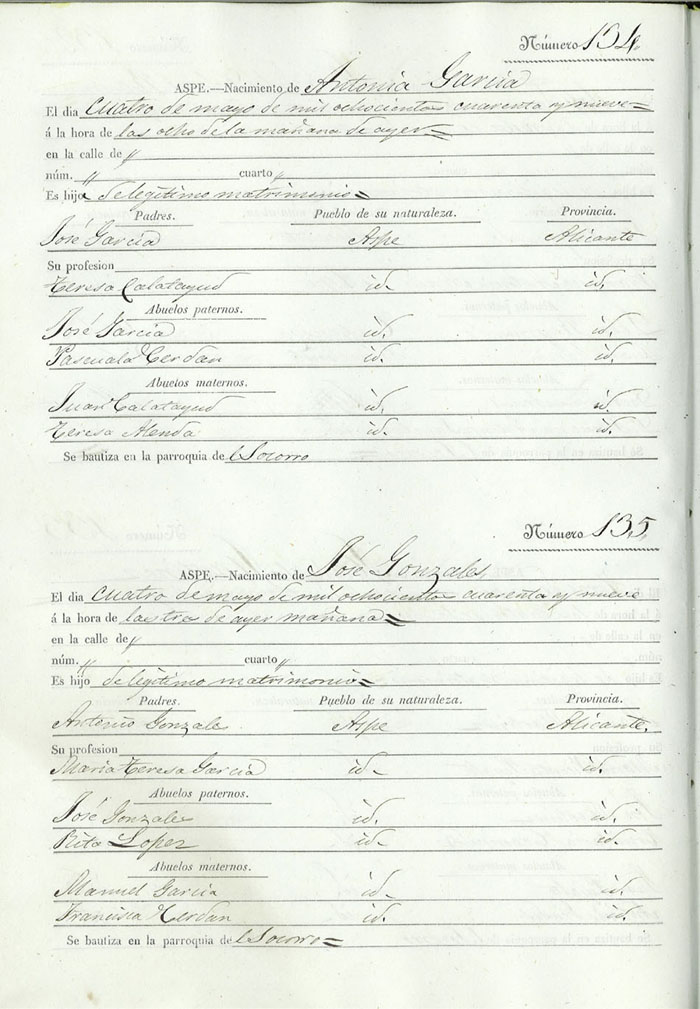 Número 134.
ASPE.—Nacimiento de Antonia Garcia
El dia cuatro de mayo de mil ochocientos cuarenta y nueve=
á la hora de las ocho de la mañana de ayer=
en la calle de "
núm. " cuarto "
Es hija de legitimo matrimonio=
Padres. Pueblo de su naturaleza. Provincia.
José Garcia Aspe Alicante
Su profesion
Teresa Calatayud id. id.
Abuelos paternos.
José Garcia id. id.
Pascuala Cerdan id. id.
Abuelos maternos.
Juan Calatayud id. id.
Teresa Alenda id. id.
Se bautiza en la parroquia del Socorro
Número 135.
ASPE.—Nacimiento de José Gonzales
El dia cuatro de mayo de mil ochocientos cuarenta y nueve
á la hora de las tres de ayer mañana=
en la calle de "
núm. " cuarto "
Es hijo de legitimo matrimonio=
Padres. Pueblo de su naturaleza. Provincia.
Antonio Gonzales Aspe Alicante.
Su profesion
Maria Teresa Garcia id. id.
Abuelos paternos.
José Gonzales id. id.
Rita Lopez id. id.
Abuelos maternos.
Manuel Garcia id. id.
Francisca Cerdan id. id.
Se bautiza en la parroquia del Socorro=